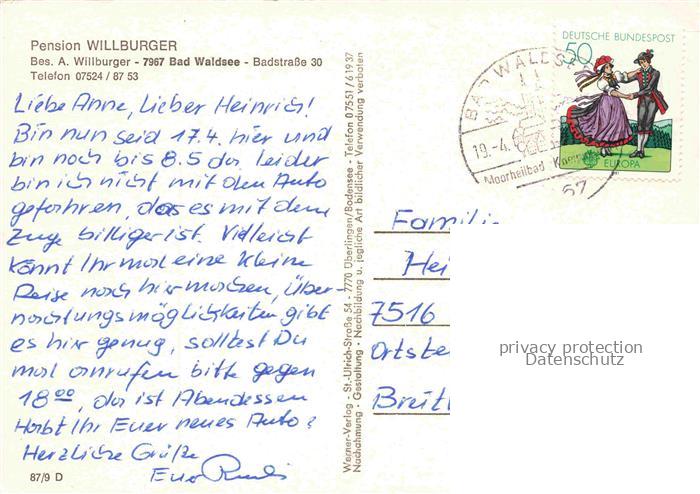 Pension WILLBURGER
Bes. A. Willburger - 7967 Bad Waldsee - Badstraße 30
Telefon 07524 / 87 53
Liebe Anne, Lieber Heinrich!
Bin nun seid 17.4. hier und
bin noch bis 8.5 da, leider
bin ich nicht mit dem Auto
gefahren, da es mit dem
Zuge billiger ist. Vielleicht
könnt Ihr mal eine kleine
Reise nach hier machen, Über-
nachtungsmöglichkeiten gibt
es hier genug, solltest Du
mal anrufen bitte gegen
18 00, da ist Abendessen
Habt Ihr Euer neues Auto?
Herzliche Grüße
Euer
87/9 D
Werner-Verlag - St.-Ulrich-Straße 54 - 7770 Überlingen/Bodensee - Telefon 0 75 51 / 6 19 37
Nachahmung - Gestaltung - Nachbildung u. jegliche Art bildlicher Verwendung verboten
DEUTSCHE BUNDESPOST
50
EUROPA
BAD WALDSEE
19.-4.
Moorheilbad
57
Famili
Hei
7516
Ortste
Breit
privacy protection
Datenschutz